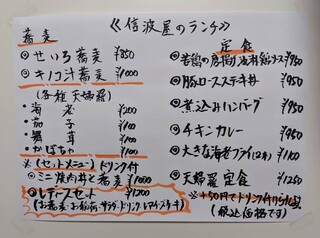 ≪信波屋のランチ≫
蕎麦
◎せいろ蕎麦 ¥850
◎キノコ汁蕎麦 ¥1000
(各種天婦羅)
・海老 ¥200
・茄子 ¥100
・舞茸 ¥100
・かぼちゃ ¥100
※(セットメニュー)ドリンク付
◎ミニ焼肉丼と蕎麦 ¥1000
◎レディースセット ¥1200
(お蕎麦・お稲荷・サラダ・ドリンク・レアチーズケーキ)
定食
◎若鶏の唐揚げ ¥950
◎豚ロースステーキ丼 ¥950
◎煮込みハンバーグ ¥950
◎チキンカレー ¥950
◎大きな海老フライ(2本) ¥1100
◎天婦羅定食 ¥1250
※+50円でドリンク付
(税込価格です)